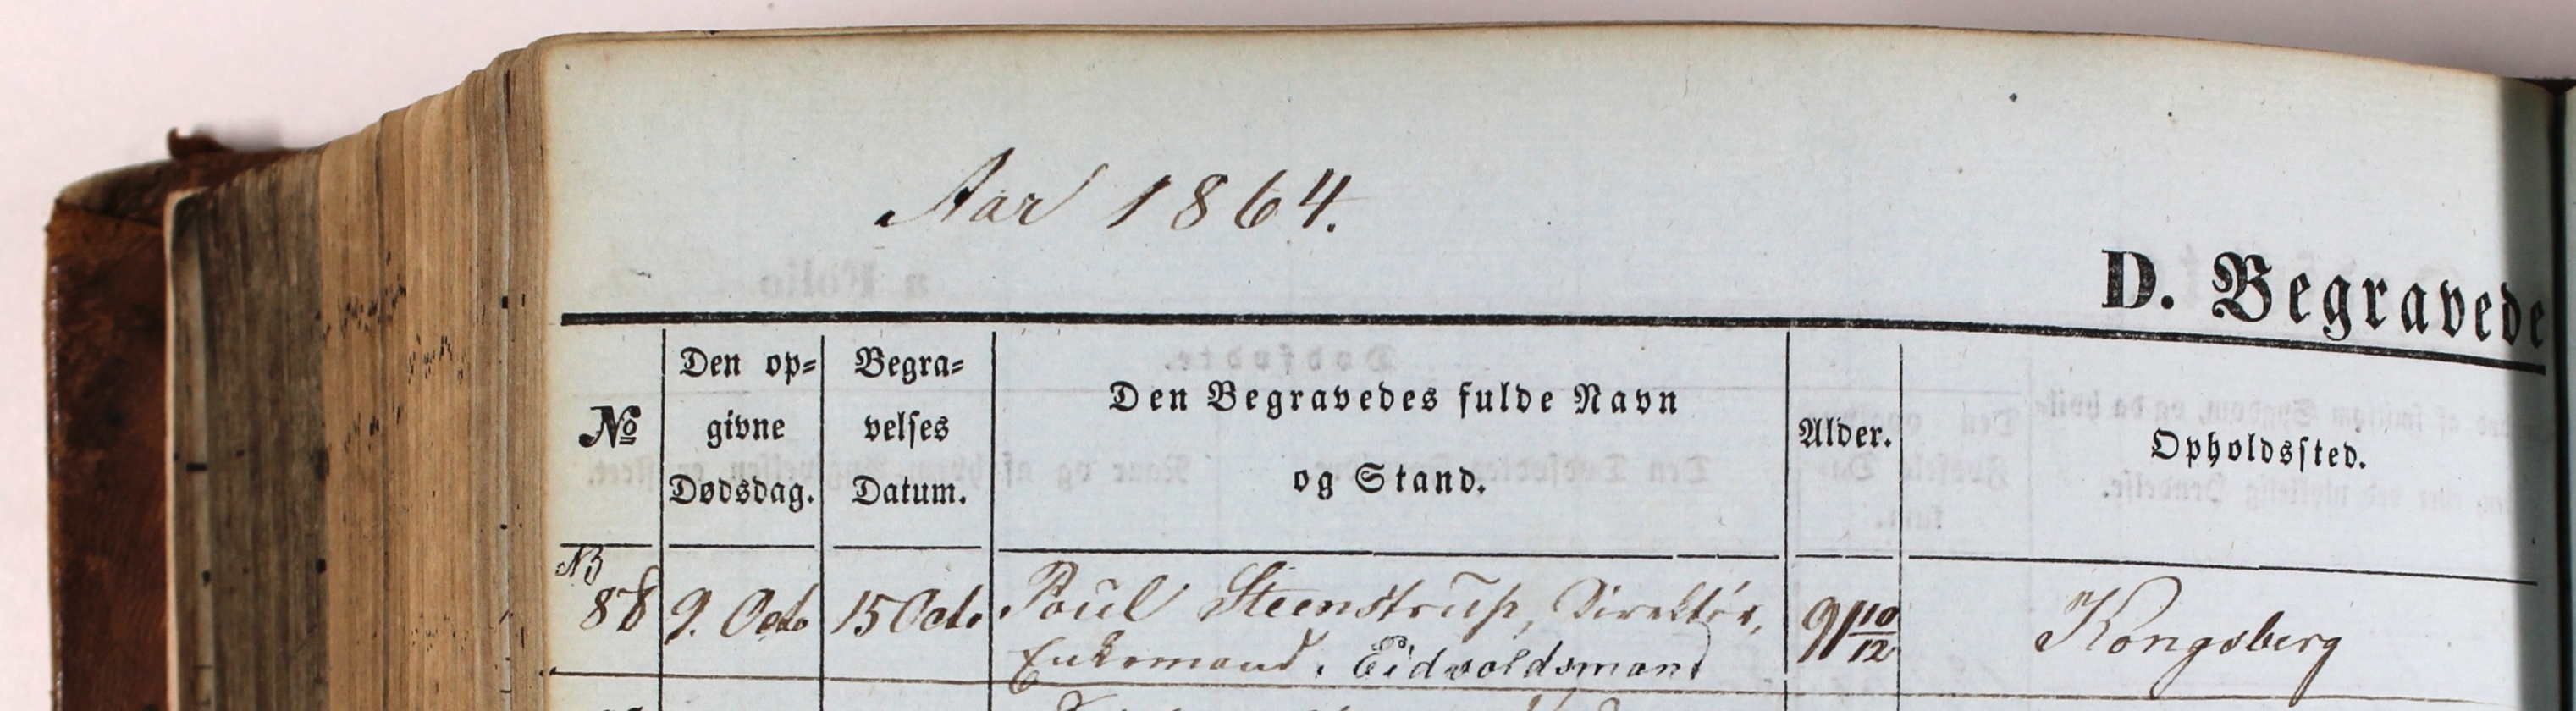 Aar 1864.
D. Begravede
No
Den op=
givne
Dødsdag.
Begra=
velses
Datum.
Den Begravedes fulde Navn
og Stand.
Alder.
Opholdssted.
NB
88
9. Octo
15 Octo
Poul Steenstrup, Direktör,
Enkemand. Eidsvoldsmand
91 10/12
Kongsberg